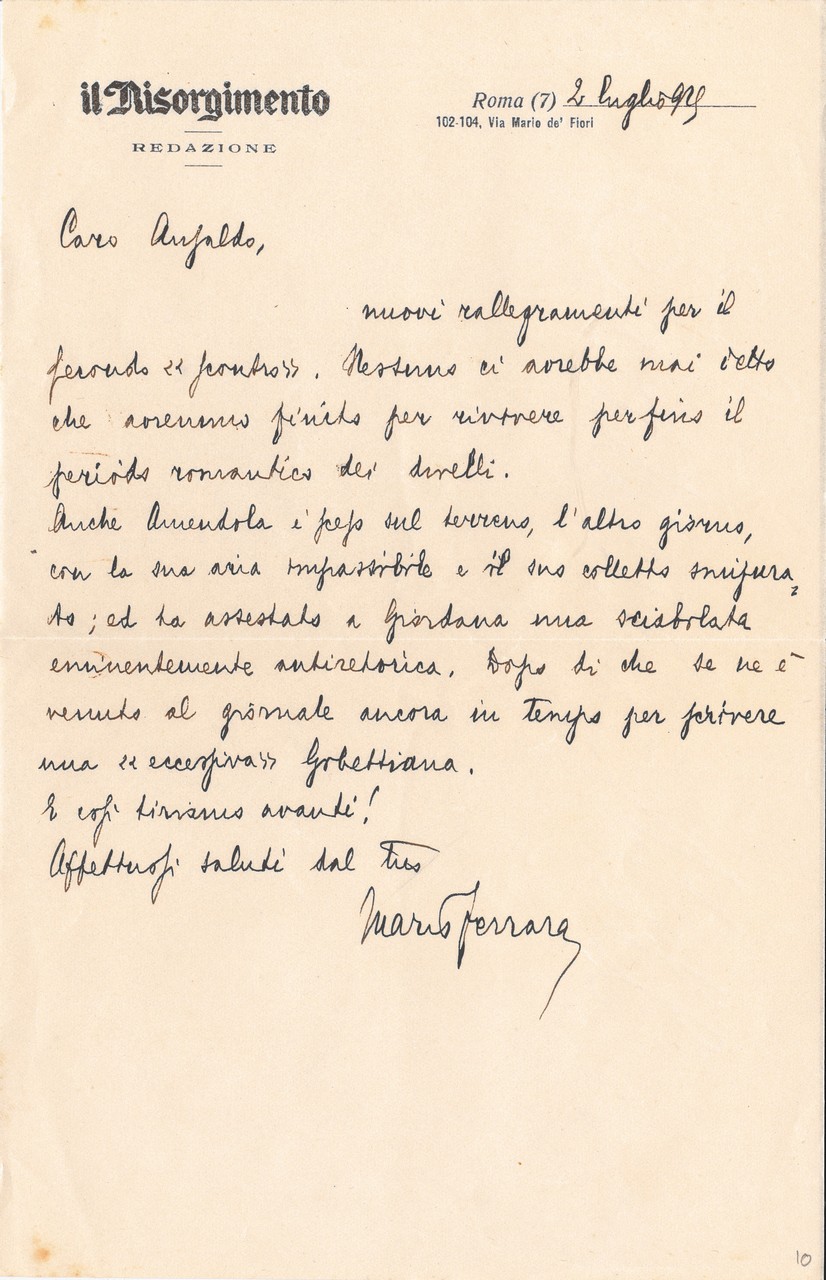 il Risorgimento
REDAZIONE
Roma (7) 2 luglio 925
102-104, Via Mario de' Fiori
Caro Ansaldo,
nuovi rallegramenti per il
secondo « scontro». Nessuno ci avrebbe mai detto
che avremmo finito per rivivere perfino il
periodo romantico dei duelli.
Anche Amendola è sceso sul terreno, l'altro giorno,
con la sua aria impassibile e il suo colletto smisura-
to; ed ha assestato a Giordana una sciabolata
eminentemente antiretorica. Dopo di che se ne è
venuto al giornale ancora in tempo per scrivere
una « eccessiva» Gobettiana.
E così tiriamo avanti!
Affettuosi saluti dal tuo
Mario Ferrara
10